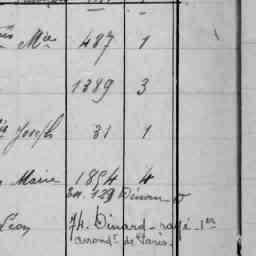 Mie 487 1
1389 3
Joseph 31 1
Marie 1854 4
En. 129 Dinan
Léon 74. Dinard - rayé 1er
arrondt de Paris.